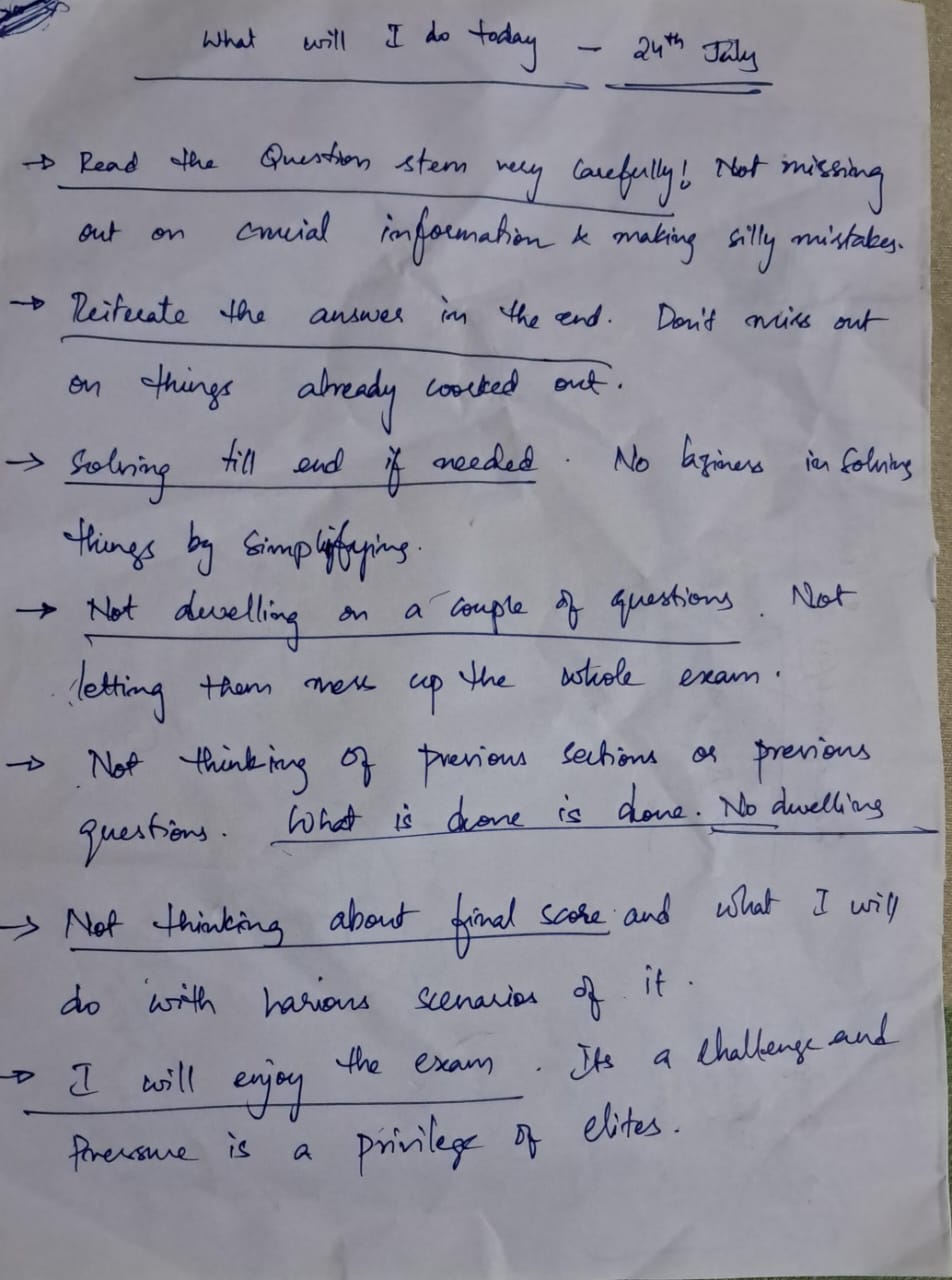 What will I do today - 24th July
→ Read the Question stem very Carefully! Not missing
out on crucial information & making silly mistakes.
→ Reiterate the answer in the end. Don't miss out
on things already worked out.
→ Solving till end if needed. No laziness in solving
things by simplifying.
→ Not dwelling on a couple of questions. Not
letting them mess up the whole exam.
→ Not thinking of previous sections or previous
questions. What is done is done. No dwelling
→ Not thinking about final score and what I will
do with various scenarios of it.
→ I will enjoy the exam. Its a challenge and
Pressure is a privilege of elites.